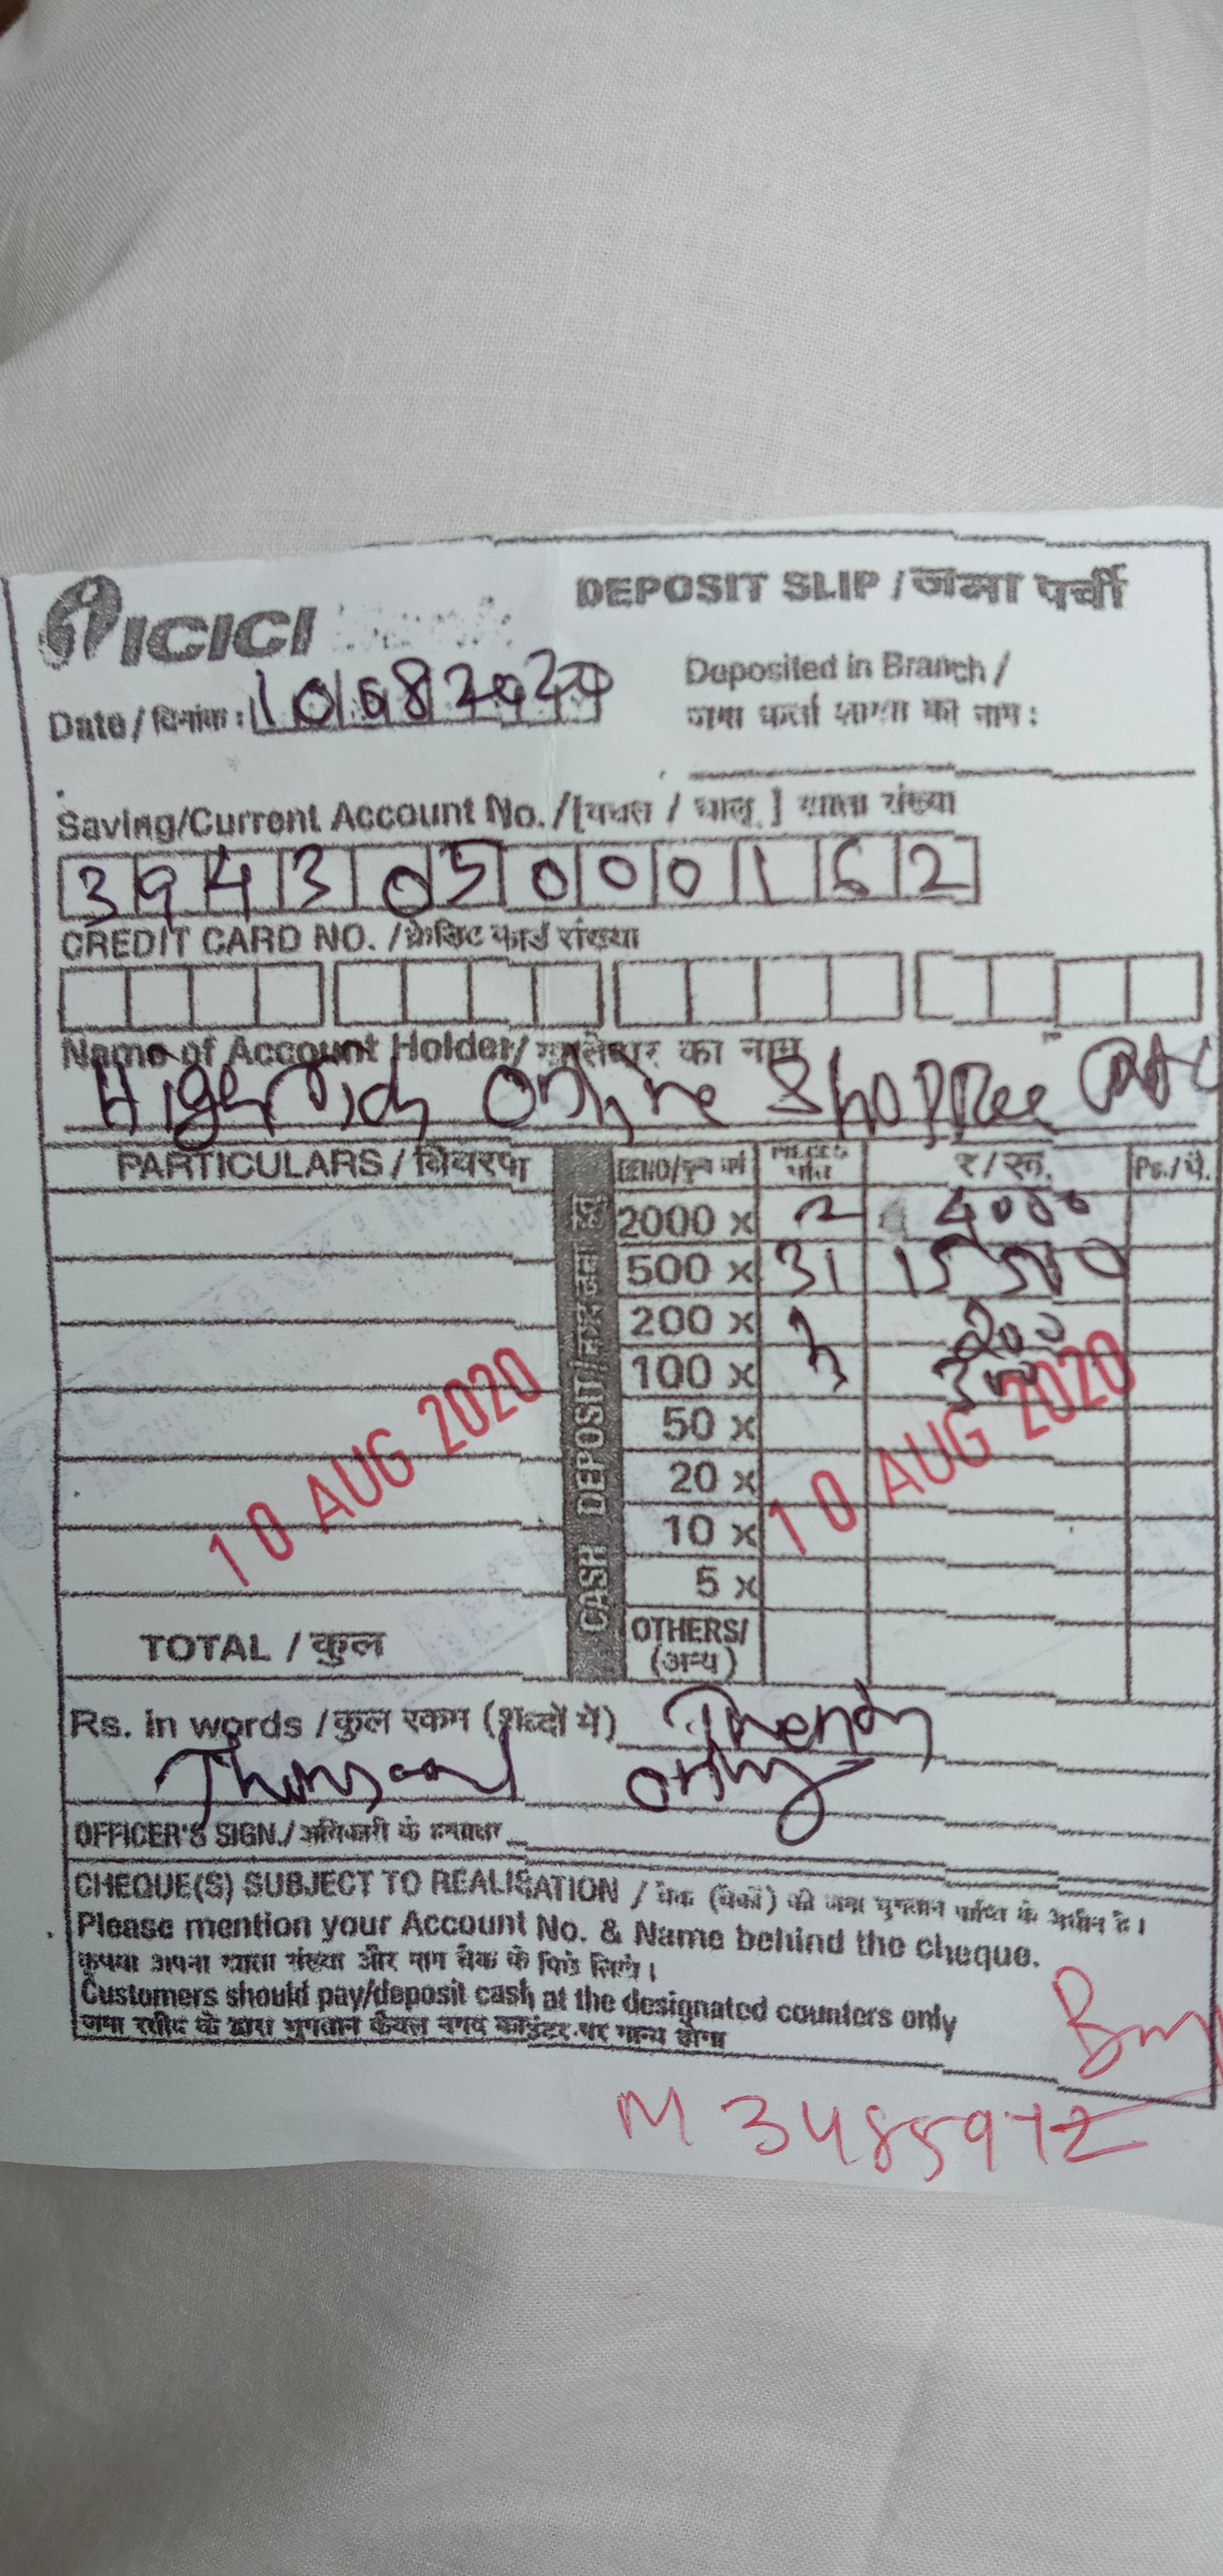 ICICI
DEPOSIT SLIP / जमा पर्ची
Date / दिनांक : 10082020
Deposited in Branch /
जमा कर्ता शाखा का नाम :
Saving/Current Account No. / [बचत / चालू ] खाता संख्या
394305000162
CREDIT CARD NO. / क्रेडिट कार्ड संख्या
Name of Account Holder/ खातेदार का नाम
Highrich Online Shoppee
PARTICULARS / विवरण
CASH DEPOSIT/
PIECES
र / रू. Ps. / पै.
2000 x 2 4000
500 x 31 15500
200 x 1 200
100 x 3 300
50 x
20 x
10 x
5 x
OTHERS/
(अन्य)
10 AUG 2020
10 AUG 2020
TOTAL / कुल
Rs. in words / कुल रकम (शब्दों में) Twenty
Thousand only
OFFICER'S SIGN./ अधिकारी के हस्ताक्षर
CHEQUE(S) SUBJECT TO REALISATION / चेक (चेकों) की जमा भुगतान प्राप्ति के अधीन है।
Please mention your Account No. & Name behind the cheque.
कृपया अपना खाता संख्या और नाम चेक के पिछे लिखे।
Customers should pay/deposit cash at the designated counters only
जमा रसीद के द्वारा भुगतान केवल नगद काउंटर पर मान्य होगा
M 3485972